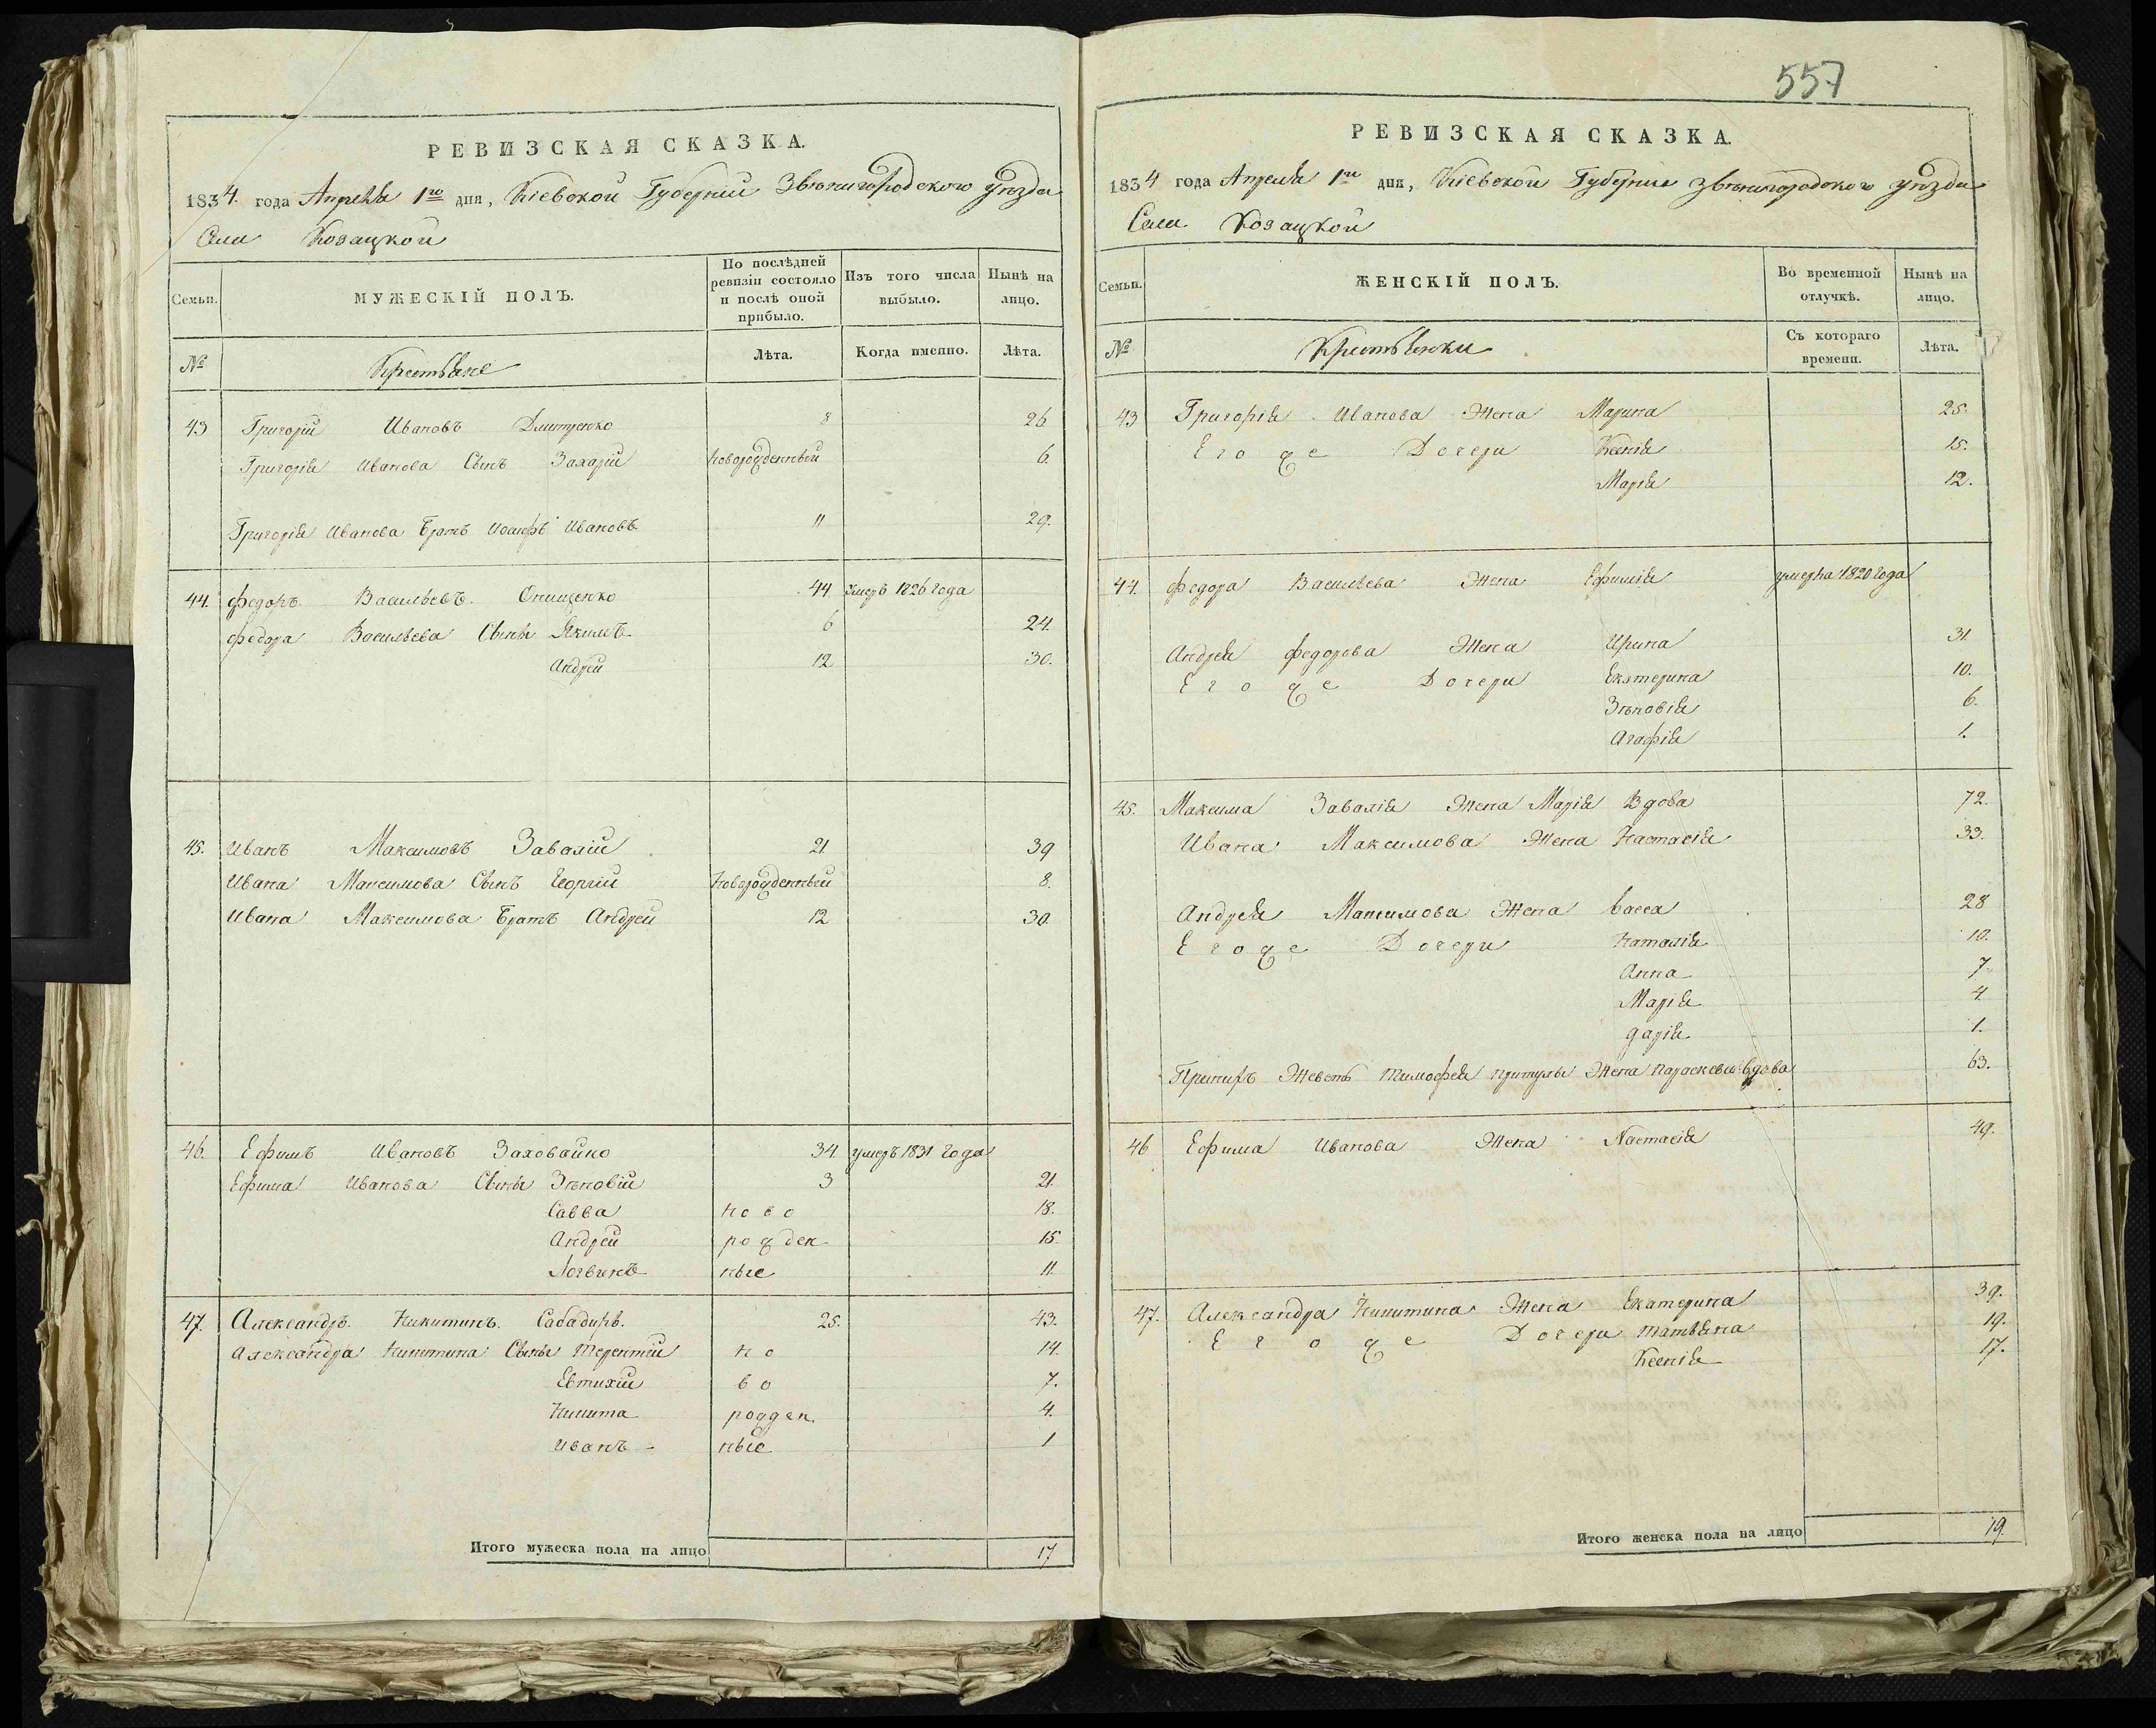 557
РЕВИЗСКАЯ СКАЗКА.
1834. года Апреля 1го дня, Кіевской Губерніи Звенигородского уѣзда
Села Козацкой
Семьи. МУЖЕСКІЙ ПОЛЪ. По послѣдней ревизіи состояло и послѣ оной прибыло. Изъ того числа выбыло. Нынѣ на лицо.
№ Крестьяне Лѣта. Когда именно. Лѣта.
43 Григорій Ивановъ Дмитренко 8 26
Григорія Иванова Сынъ Захарій новорожденный 6.
Григорія Иванова Братъ Иосифъ Ивановъ 11 29.
44. Федоръ Васильевъ Онищенко 44 умеръ 1826 года
Федора Васильева Сыны Якимъ 6 24.
Андрей 12 30.
45. Иванъ Максимовъ Завалій 21 39
Ивана Максимова Сынъ Георгій новорожденный 8.
Ивана Максимова Братъ Андрей 12 30.
46. Ефимъ Ивановъ Заховайко 34 умеръ 1831 года
Ефима Иванова Сыны Зѣновій 3 21.
Савва ново 18.
Андрей рожден 15.
Логвинъ ные 11.
47. Александръ Никитинъ Сабадиръ 25. 43.
Александра Никитина Сыны Терентій но 14.
Евтихій во 7.
Никита рожден. 4.
Иванъ ные 1
Итого мужеска пола на лицо 17
РЕВИЗСКАЯ СКАЗКА.
1834 года Апреля 1го дня, Кіевской Губерніи Звенигородского уѣзда
Села Козацкой
Семьи. ЖЕНСКІЙ ПОЛЪ. Во временной отлучкѣ. Нынѣ на лицо.
№ Крестьянки Съ котораго времени. Лѣта.
43 Григорія Иванова Жена Марина 25.
Его же Дочери Ксенія 15.
Марія 12.
44. Федора Васильева Жена Ефимія умерла 1820 года
Андрея Федорова Жена Ирина 31
Его же Дочери Екатерина 10.
Зѣновія 6.
Агафія 1.
45. Максима Завалія Жена Марія Вдова 72.
Ивана Максимова Жена Настасія 33.
Андрея Максимова Жена Васса 28
Его же Дочери Наталія 10.
Анна 7.
Марія 4
Дарія 1.
Тимофея Притулы Жена Параскевія Вдова 63.
46 Ефима Иванова Жена Настасія 49.
47. Александра Никитина Жена Екатерина 39.
Его же Дочери Татьяна 19.
Ксенія 17.
Итого женска пола на лицо 19.